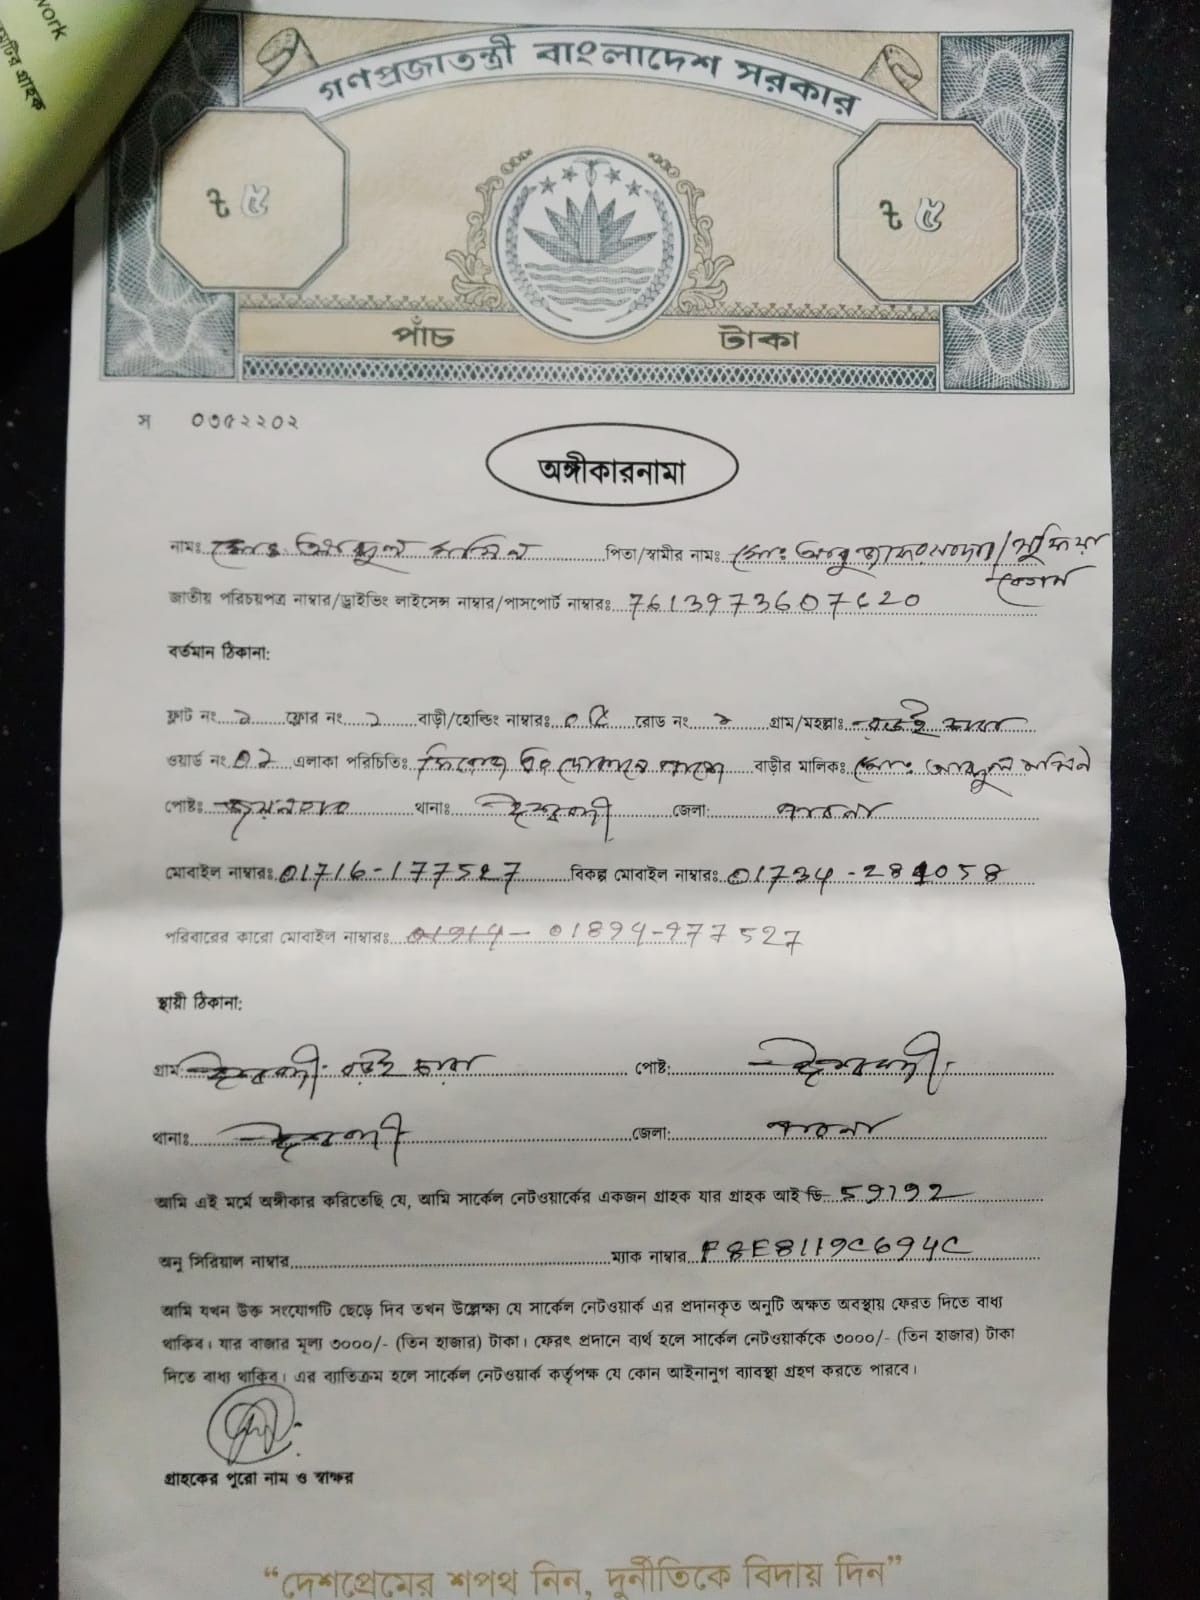 work
মেটির গ্রাহক
গণপ্রজাতন্ত্রী বাংলাদেশ সরকার
৳ ৫ ৳ ৫
পাঁচ টাকা
স ০৩৫২২০২
অঙ্গীকারনামা
নামঃ মোঃ আব্দুল মমিন পিতা/স্বামীর নামঃ মোঃ /সুফিয়া
বেগম
জাতীয় পরিচয়পত্র নাম্বার/ড্রাইভিং লাইসেন্স নাম্বার/পাসপোর্ট নাম্বারঃ 7613973607620
বর্তমান ঠিকানা:
ফ্লাট নং ফ্লোর নং বাড়ী/হোল্ডিং নাম্বারঃ রোড নং গ্রাম/মহল্লাঃ
ওয়ার্ড নং এলাকা পরিচিতিঃ বাড়ীর মালিকঃ মোঃ আব্দুল মমিন
পোষ্টঃ থানাঃ ঈশ্বরদী জেলা: পাবনা
মোবাইল নাম্বারঃ 01716-177527 বিকল্প মোবাইল নাম্বারঃ 01734-281058
পরিবারের কারো মোবাইল নাম্বারঃ 01914- 01894-977527
স্থায়ী ঠিকানা:
গ্রাম: ঈশ্বরদী পোষ্ট: ঈশ্বরদী
থানাঃ ঈশ্বরদী জেলা: পাবনা
আমি এই মর্মে অঙ্গীকার করিতেছি যে, আমি সার্কেল নেটওয়ার্কের একজন গ্রাহক যার গ্রাহক আই ডি 59792
অনু সিরিয়াল নাম্বার ম্যাক নাম্বার F8E8119C694C
আমি যখন উক্ত সংযোগটি ছেড়ে দিব তখন উল্লেক্ষ্য যে সার্কেল নেটওয়ার্ক এর প্রদানকৃত অনুটি অক্ষত অবস্থায় ফেরত দিতে বাধ্য
থাকিব। যার বাজার মূল্য ৩০০০/- (তিন হাজার) টাকা। ফেরৎ প্রদানে ব্যর্থ হলে সার্কেল নেটওয়ার্ককে ৩০০০/- (তিন হাজার) টাকা
দিতে বাধ্য থাকিব। এর ব্যাতিক্রম হলে সার্কেল নেটওয়ার্ক কর্তৃপক্ষ যে কোন আইনানুগ ব্যাবস্থা গ্রহণ করতে পারবে।
গ্রাহকের পুরো নাম ও স্বাক্ষর
“দেশপ্রেমের শপথ নিন, দুর্নীতিকে বিদায় দিন”